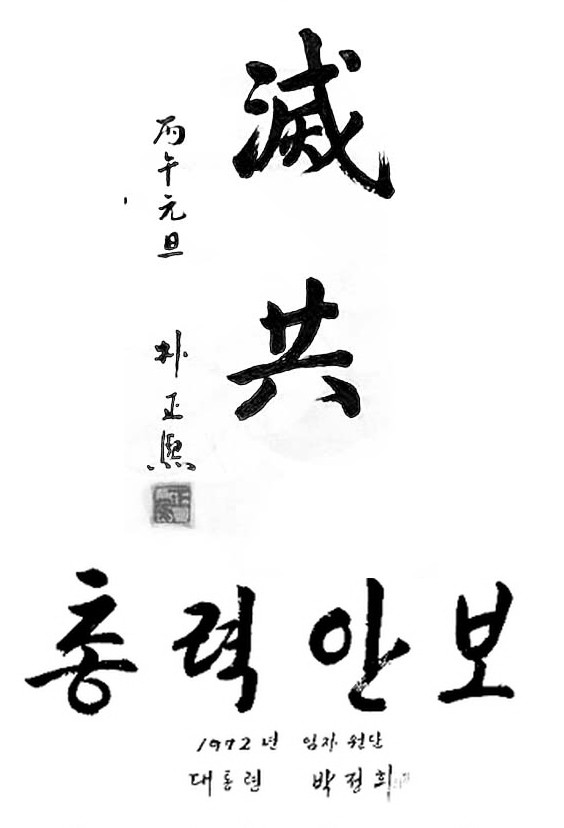 滅共
丙午元旦 朴正熙
총력안보
1972년 임자 원단
대통령 박정희